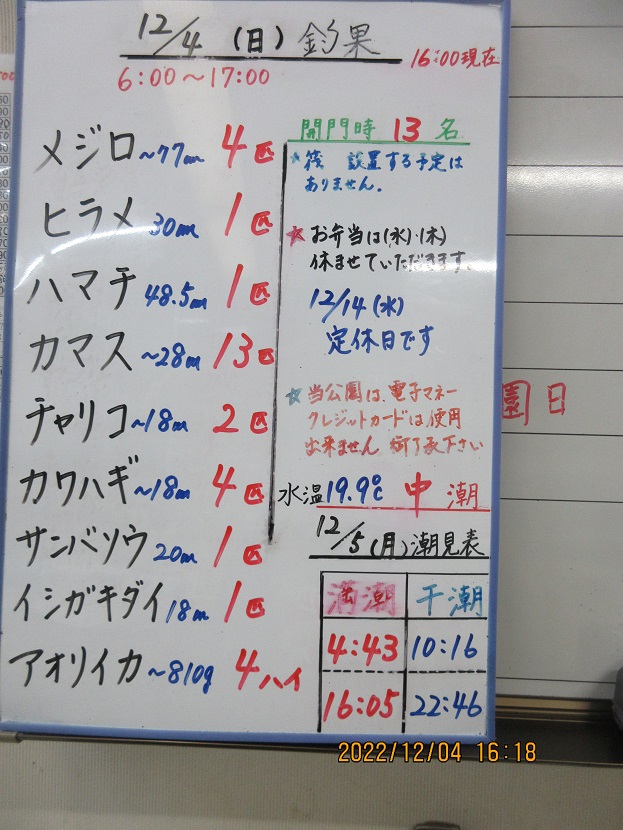 12/4 (日) 釣果
16:00現在
6:00～17:00
メジロ ~77cm 4匹
ヒラメ 30cm 1匹
ハマチ 48.5cm 1匹
カマス ~28cm 13匹
チャリコ ~18cm 2匹
カワハギ ~18cm 4匹
サンバソウ 20cm 1匹
イシガキダイ 18cm 1匹
アオリイカ ~810g 4ハイ
開門時 13名
★筏 設置する予定は
ありません。
☆お弁当は(水)・(木)
休ませていただきます。
12/14(水)
定休日です
☆当公園は、電子マネー
クレジットカードは使用
出来ません 御了承下さい
水温19.9℃ 中潮
12/5(月)潮見表
満潮 干潮
4:43 10:16
16:05 22:46
園日
2022/12/04 16:18